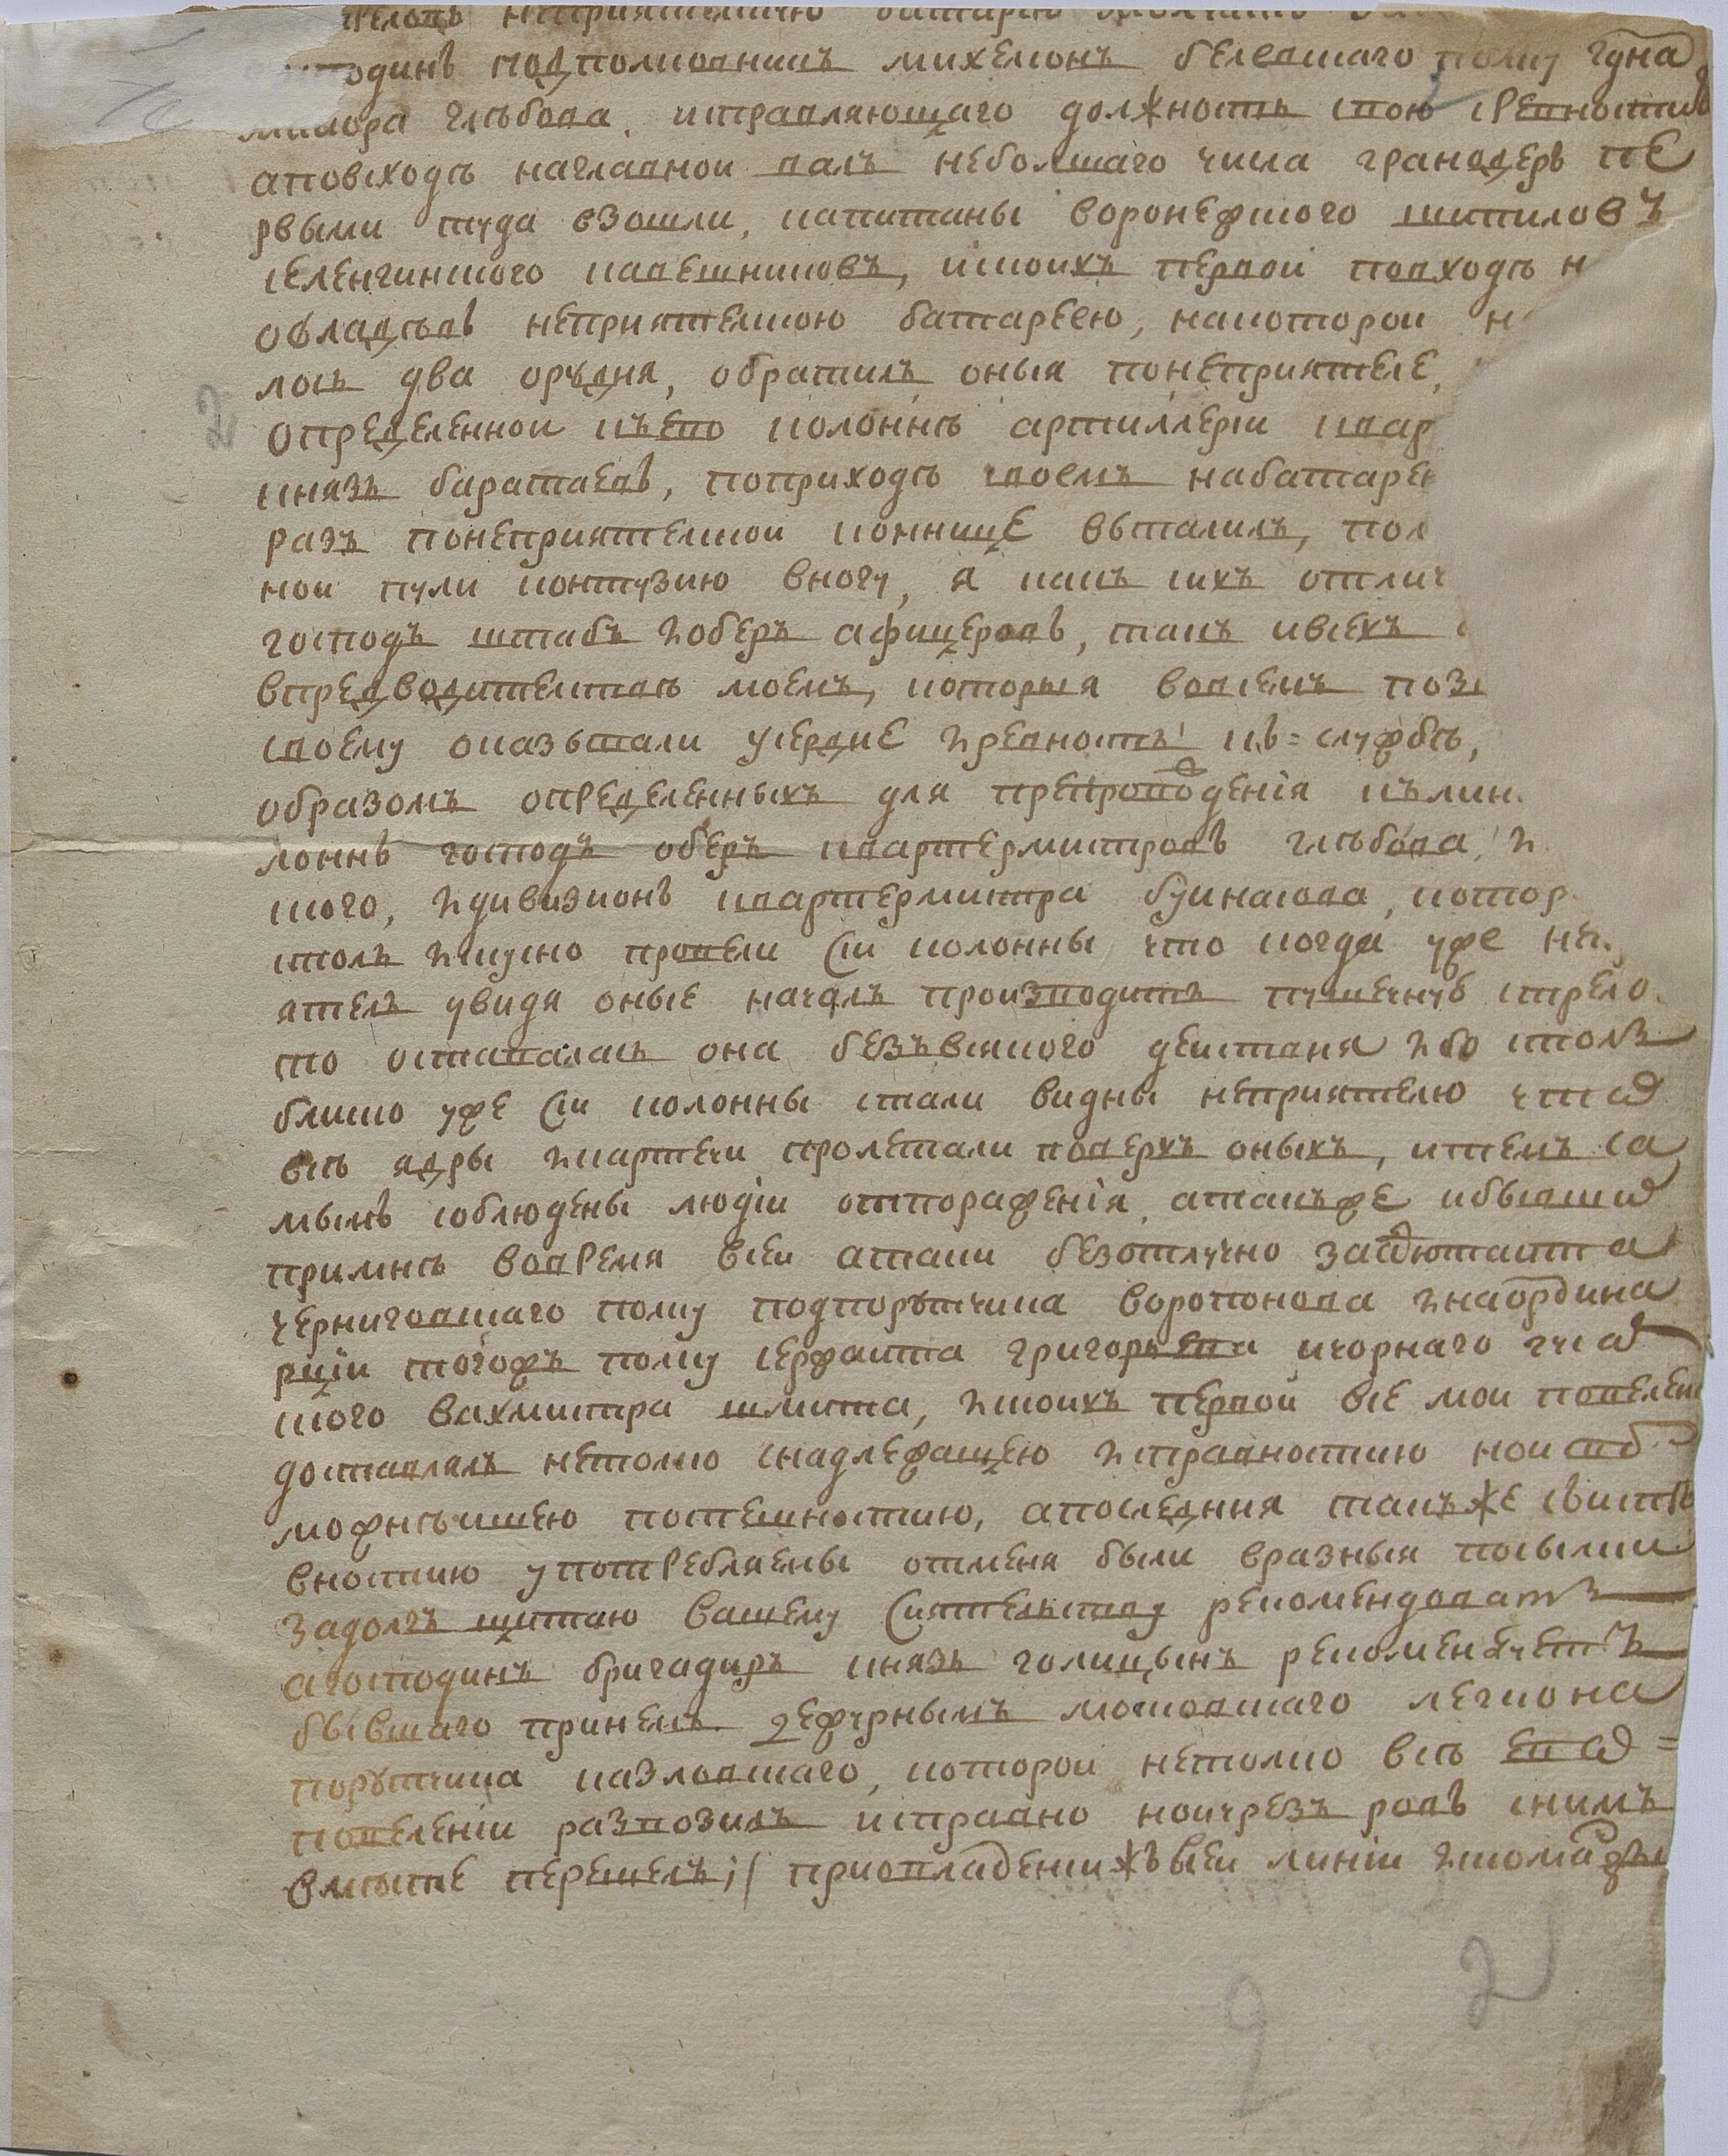 неприятелскую батарею
одинъ подполковникъ михелсонъ белевскаго полку
маиора глѣбова, исправляющаго должность свою с ревностию
а по всходѣ на главной валъ неболшаго числа гранодеръ пе
рвыми туда взошли, капитаны воронежского шипиловъ
селенгинского кавешниковъ, ис коихъ первой по входѣ
овладѣвъ неприятелскою батареею, на которой
лось два орудия, обратилъ оныя по неприятеле,
определенной къ его колоннѣ артиллерии квар
князь баратаевъ, по приходѣ своемъ на батарею
разъ по неприятелской коннице выпалилъ, пол
ной пули контузию в ногу, я какъ сихъ отлич
господъ штабъ и оберъ афицеровъ, такъ и всехъ
в предводителствѣ моемъ, которыя во всемъ
своему оказывали усердие и ревность къ службѣ,
образомъ определенныхъ для препровождения къ моим
лоннъ господъ оберъ квартермистровъ глѣбова, и
ского, и дивизионъ квартермистра буйносова, котор
столь искусно провели сии колонны что когда уже не
ятель увидя оные началъ производить пушечную стрело
то оставалась она безъ всякого действия ибо столь
блиско уже сии колонны стали видны неприятелю что
всѣ ядры и картечи пролетали поверхъ оныхъ, и темъ са
мымъ соблюдены людии от поражения, а такъже и бывши
при мнѣ во время всей атаки безотлучно за адютанта
черниговскаго полку подпорутчика воропонова и на ордина
рции тогожъ полку сержанта григорьева и чорнаго гуса
ского вахмистра шмита, ис коихъ первой все мои повелени
доставлялъ нетолко с надлежащею исправностию но и съ
можнѣйшею поспешностию, а последния такъже
вностию употребляемы от меня были в разныя посылки
за долгъ щитаю вашему сиятельству рекомендовать
а господинъ бригадиръ князь голицынъ рекоменduетъ
бывшаго при немъ дежурнымъ московскаго легиона
порутчика казловскаго, которой нетолко всѣ ево
повелении развозилъ исправно но и чрезъ ровъ с нимъ
вместе перешелъ; // при овладении жъ всей линии